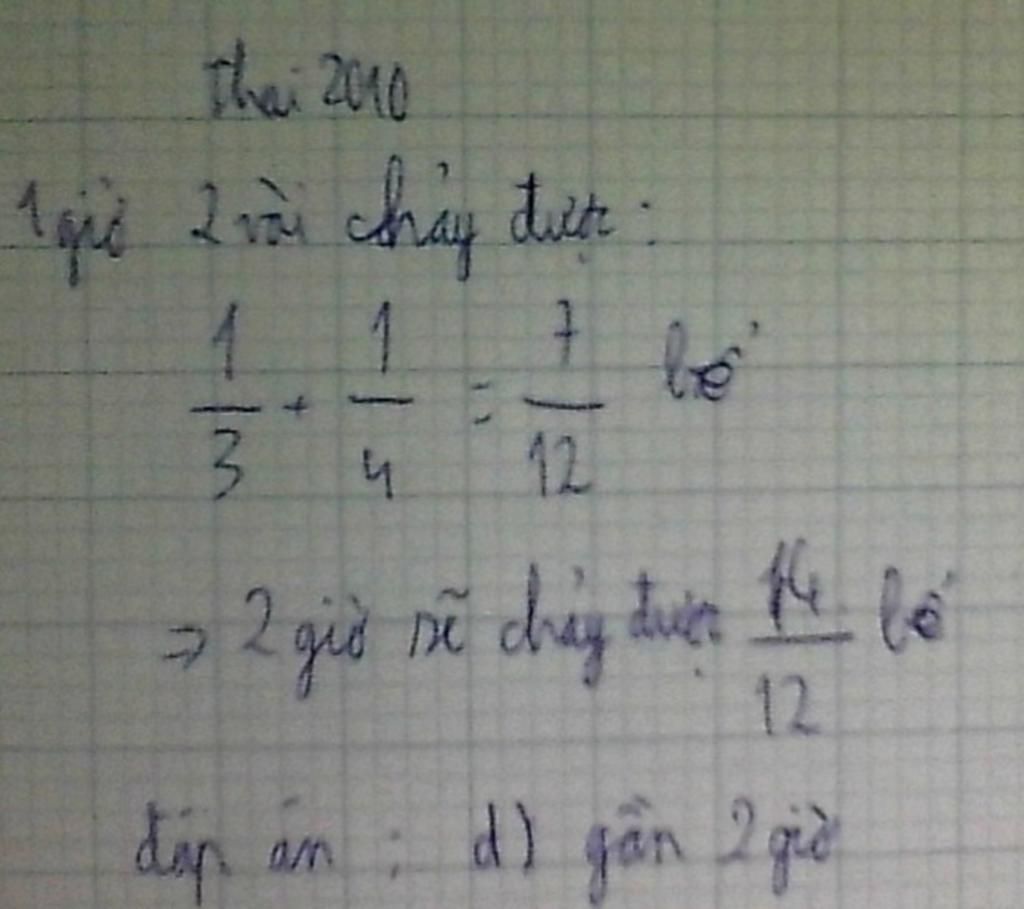 thai 2010
1 giờ 2 vòi chảy được:
1/3 + 1/4 = 7/12 bể
=> 2 giờ sẽ chảy được 14/12 bể
đáp án : d) gần 2 giờ